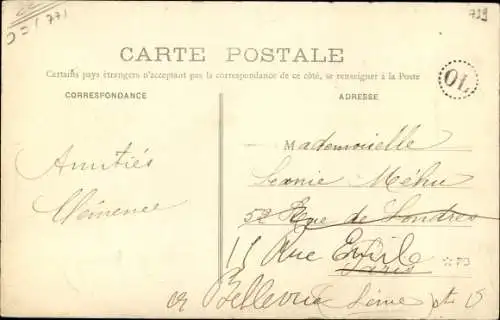 771
739
CARTE POSTALE
Certains pays étrangers n'acceptant pas la correspondance de ce côté, se renseigner à la Poste
CORRESPONDANCE
ADRESSE
OL
Amitiés
Clémence
Mademoiselle
Léonie Méhu
52 Rue de Londres
11 Rue Emile
Paris
Bellevue (Seine et O